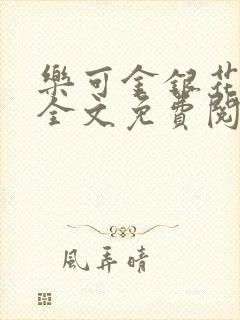 樂可金銀花
全文免費閱
風弄晴